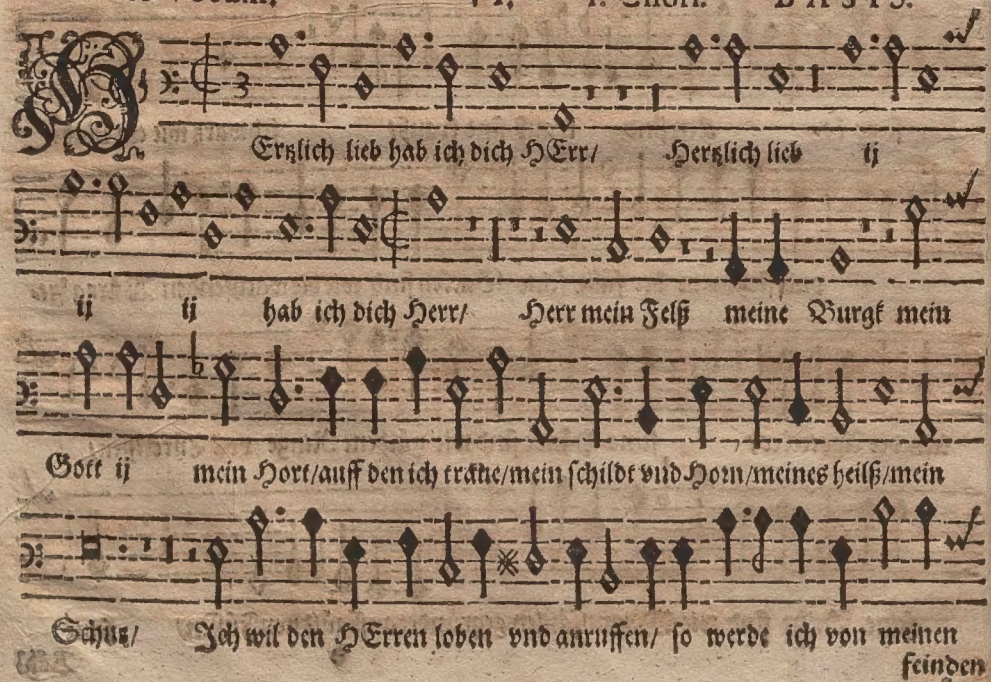 VI. I. Chori. BASIS.
HErtzlich lieb hab ich dich HErr/ Hertzlich lieb ij
ij ij hab ich dich Herr/ Herr mein Felß meine Burgk mein
Gott ij mein Hort/auff den ich traue/mein schildt vnd Horn/meines heilß/mein
Schutz/ Ich wil den HErren loben vnd anruffen/ so werde ich von meinen
feinden